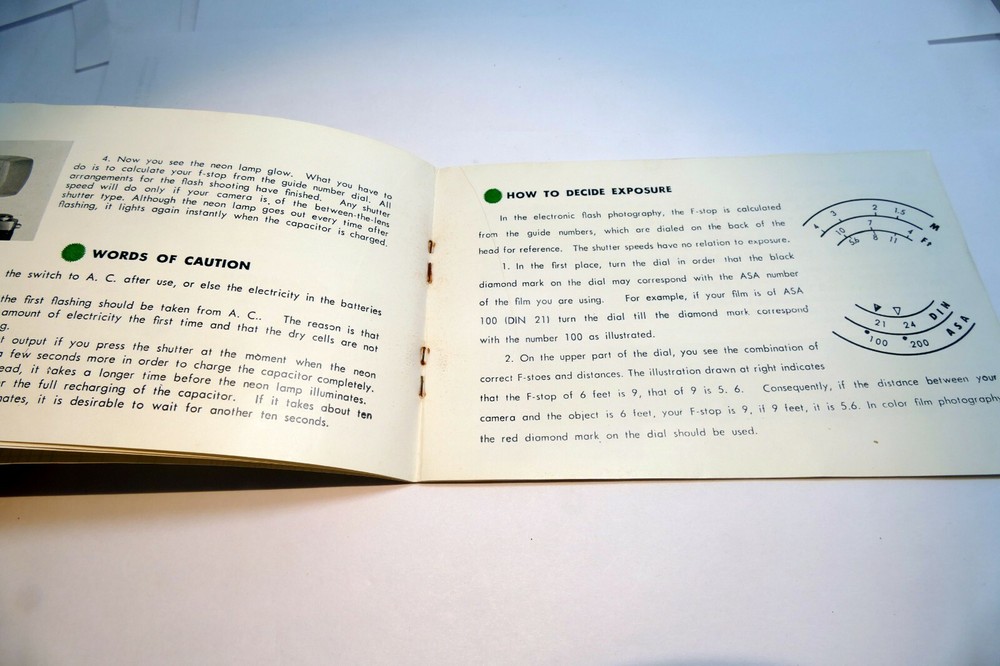 4. Now you see the neon lamp glow. What you have to
do is to calculate your f-stop from the guide number dial. All
arrangements for the flash shooting have finished. Any shutter
speed will do only if your camera is of the between-the-lens
shutter type. Although the neon lamp goes out every time after
flashing, it lights again instantly when the capacitor is charged.
WORDS OF CAUTION
the switch to A. C. after use, or else the electricity in the batteries
the first flashing should be taken from A. C.. The reason is that
amount of electricity the first time and that the dry cells are not
g.
output if you press the shutter at the moment when the neon
a few seconds more in order to charge the capacitor completely.
ead, it takes a longer time before the neon lamp illuminates.
r the full recharging of the capacitor. If it takes about ten
nates, it is desirable to wait for another ten seconds.
HOW TO DECIDE EXPOSURE
In the electronic flash photography, the F-stop is calculated
from the guide numbers, which are dialed on the back of the
head for reference. The shutter speeds have no relation to exposure.
1. In the first place, turn the dial in order that the black
diamond mark on the dial may correspond with the ASA number
of the film you are using. For example, if your film is of ASA
100 (DIN 21) turn the dial till the diamond mark correspond
with the number 100 as illustrated.
2. On the upper part of the dial, you see the combination of
correct F-stoes and distances. The illustration drawn at right indicates
that the F-stop of 6 feet is 9, that of 9 is 5. 6. Consequently, if the distance between your
camera and the object is 6 feet, your F-stop is 9, if 9 feet, it is 5.6. In color film photography
the red diamond mark on the dial should be used.
3 2 1.5 M
4 10 7 4 Ft
5.6 8 11
21 24 DIN
100 200 ASA